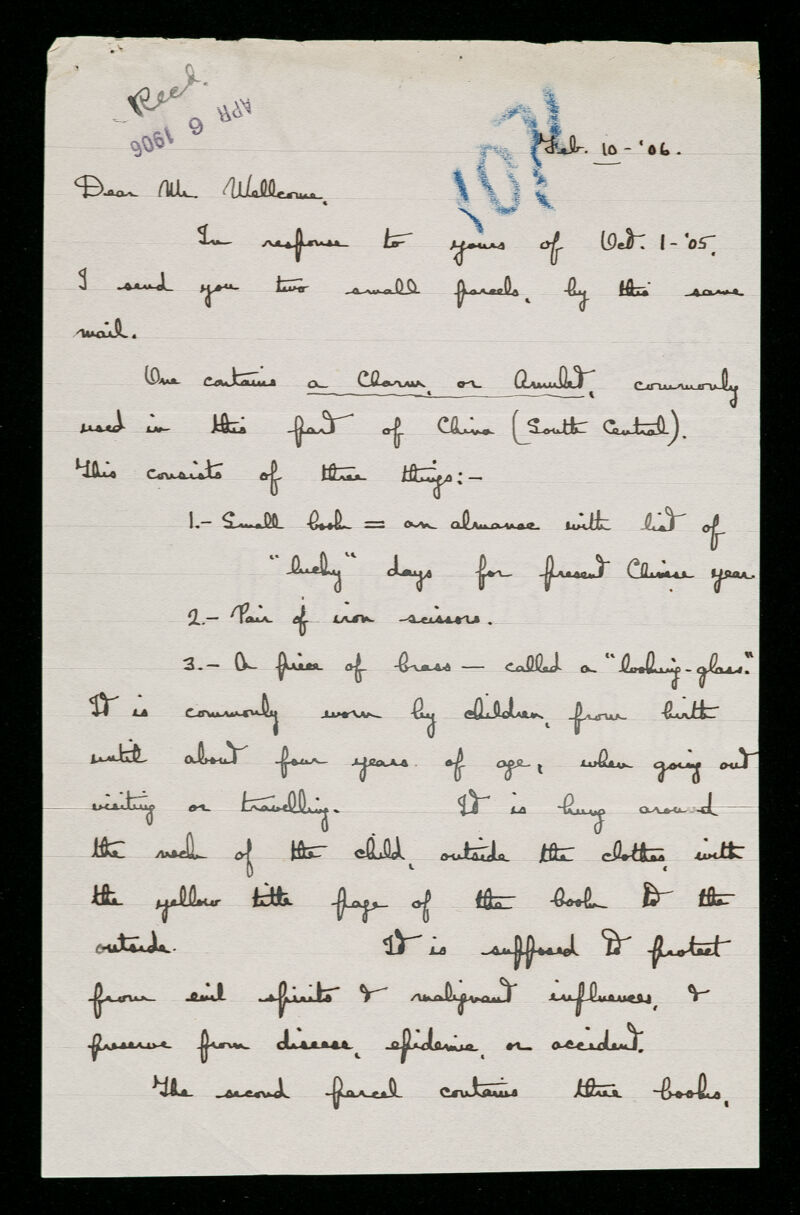 Recd.
APR 6 1906
Feb. 10-'06.
Dear Mr. Wellcome,
In response to yours of Oct. 1-'05,
I send you two small parcels, by this same
mail.
One contains a Charm, or Amulet, commonly
used in this part of China (South Central).
This consists of three things:-
1.- Small book = an almanac with list of
"lucky" days for present Chinese year
2.- Pair of iron scissors.
3.- A piece of brass — called a "looking-glass."
It is commonly worn by children, from birth
until about four years of age, when going out
visiting or travelling. It is hung around
the neck of the child, outside the clothes, with
the yellow title page of the book to the
outside. It is supposed to protect
from evil spirits & malignant influences, &
preserve from disease, epidemic, or accident.
The second parcel contains three books,